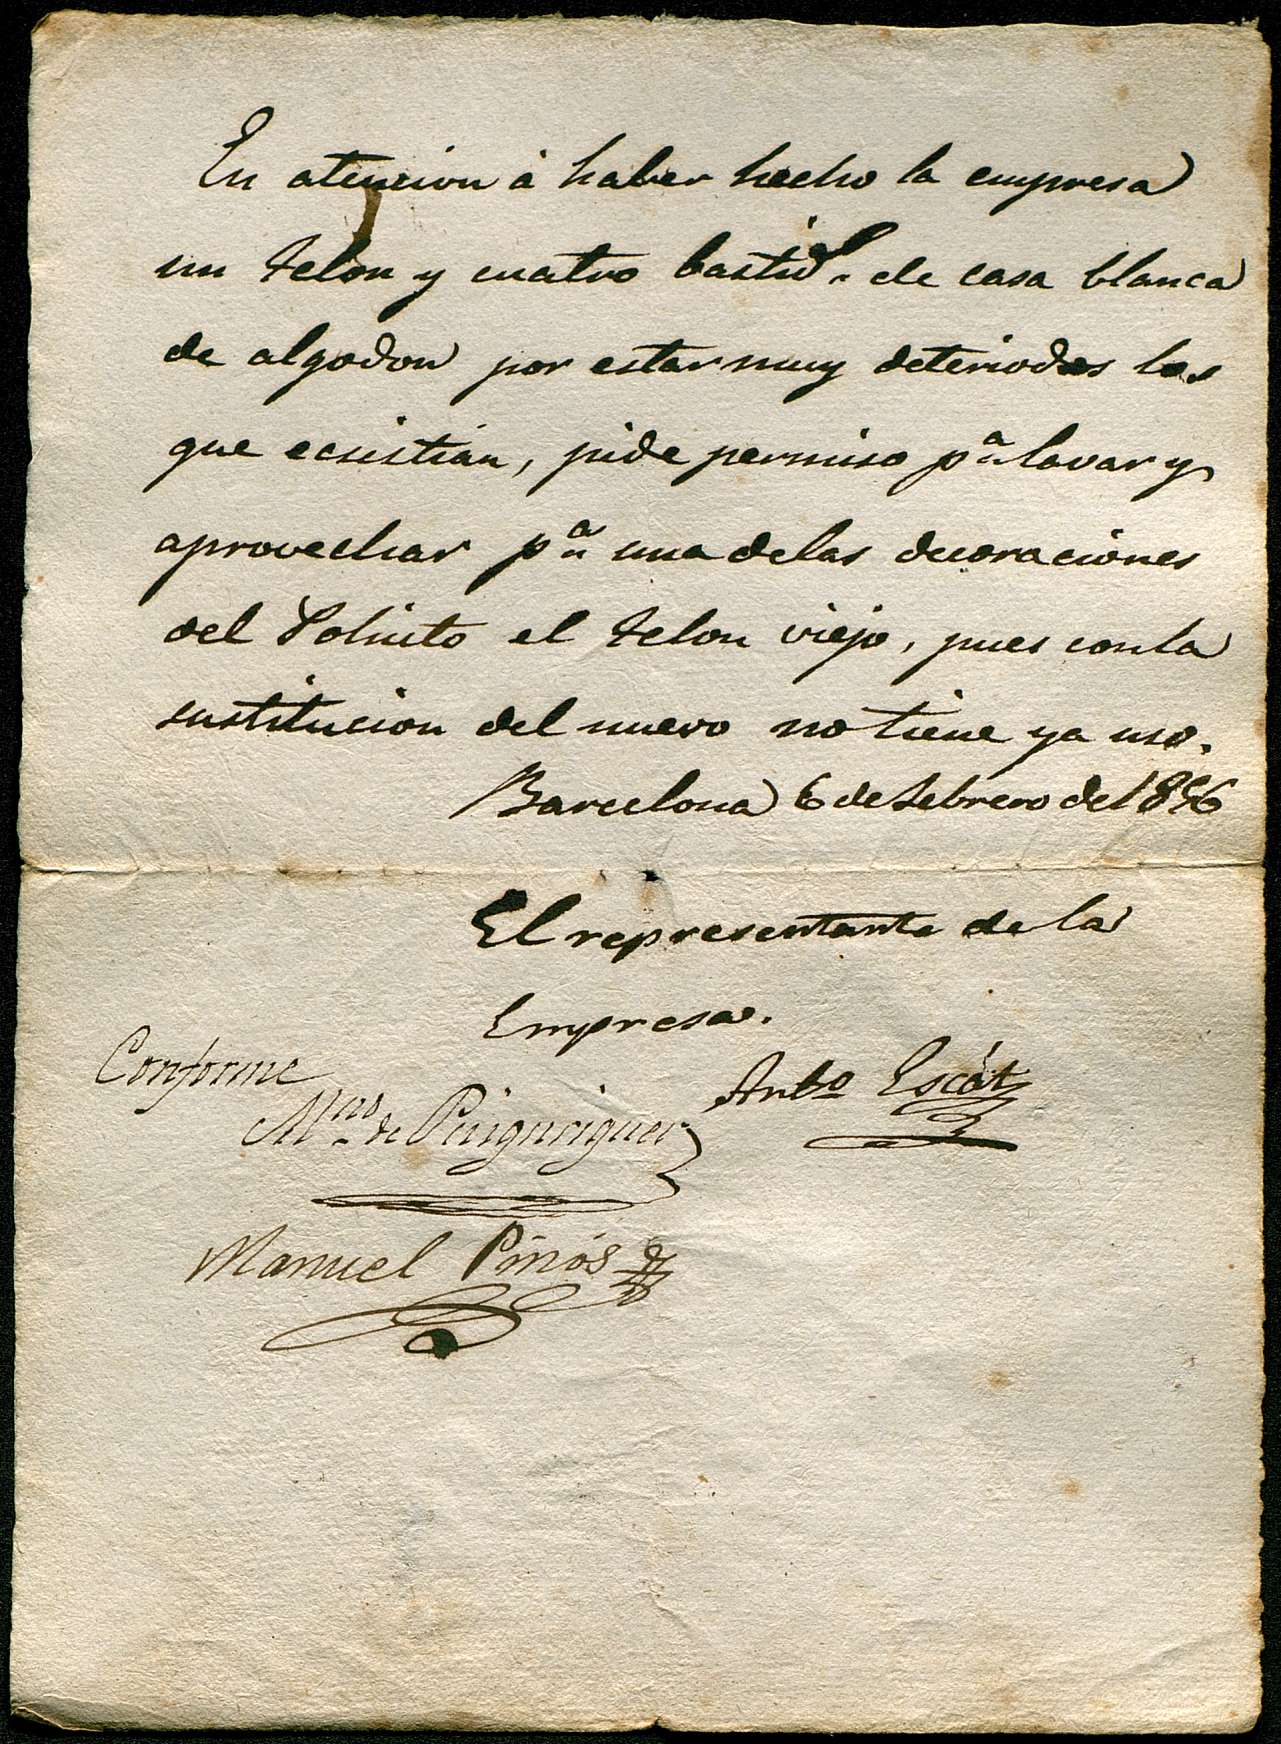 En atencion á haber hecho la empresa
un telon y cuatro bastid.s de casa blanca
de algodon por estar muy deteriodos los
que ecsistian, pide permiso p.a lavar y
aprovechar p.a una de las decoraciones
del Poliuto el telon viejo, pues con la
sustitucion del nuevo no tiene ya uso.
Barcelona 6 de Febrero de 1856
El representante de la
Empresa.
Conforme
Antº Escát
M.no de Puiguriguer
Manuel Pinós